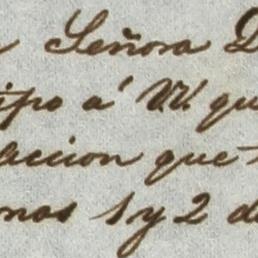 Señora D
ipo á V. V. qu
accion que
nos 1 y 2 d